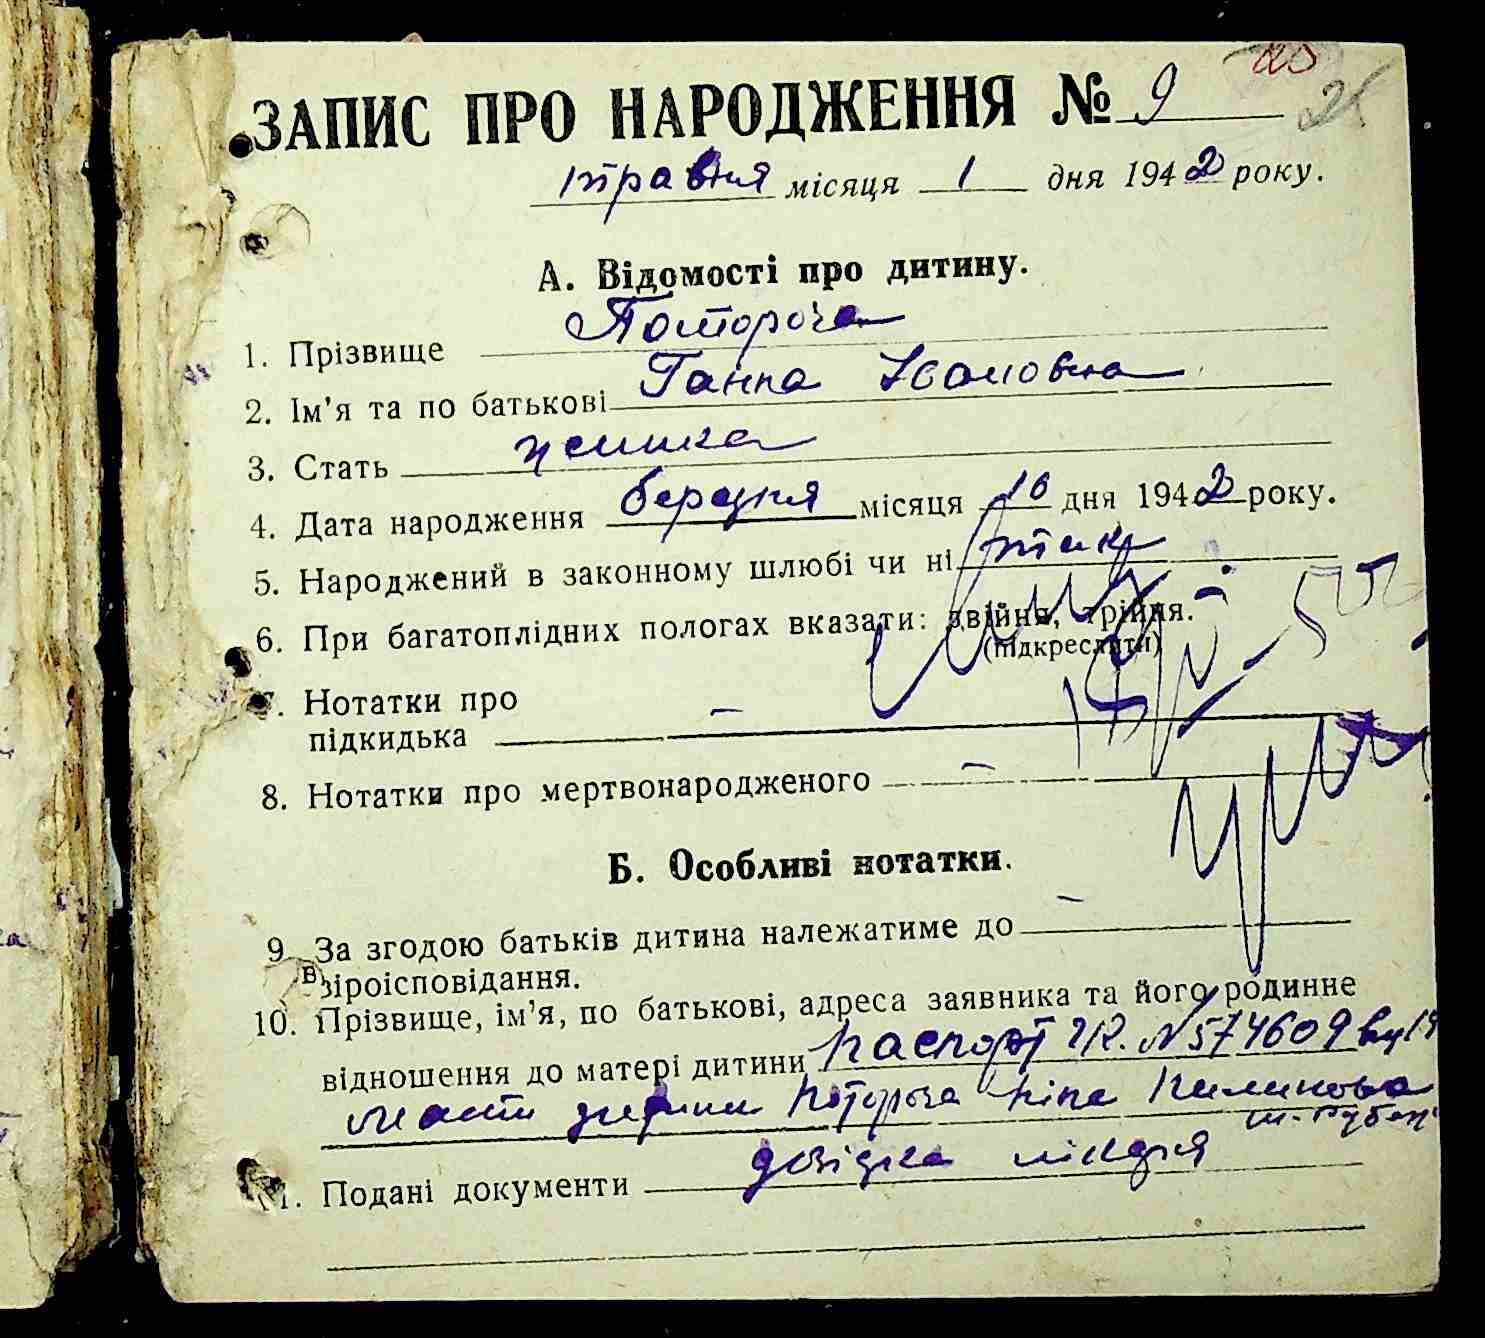 ЗАПИС ПРО НАРОДЖЕННЯ № 9
25
травня місяця 1 дня 1942 року.
А. Відомості про дитину.
1. Прізвище Потороча
2. Ім'я та по батькові Ганна Івановна
3. Стать жінка
4. Дата народження березня місяця 16 дня 1942 року.
5. Народжений в законному шлюбі чи ні так
6. При багатоплідних пологах вказати: двійня, трійня.
(підкреслити)
7. Нотатки про
підкидька –
8. Нотатки про мертвонародженого –
Б. Особливі нотатки.
9. За згодою батьків дитина належатиме до –
віроісповідання.
10. Прізвище, ім'я, по батькові, адреса заявника та його родинне
відношення до матері дитини паспорт №574609
мати дитини Потороча
11. Подані документи довідка лікаря